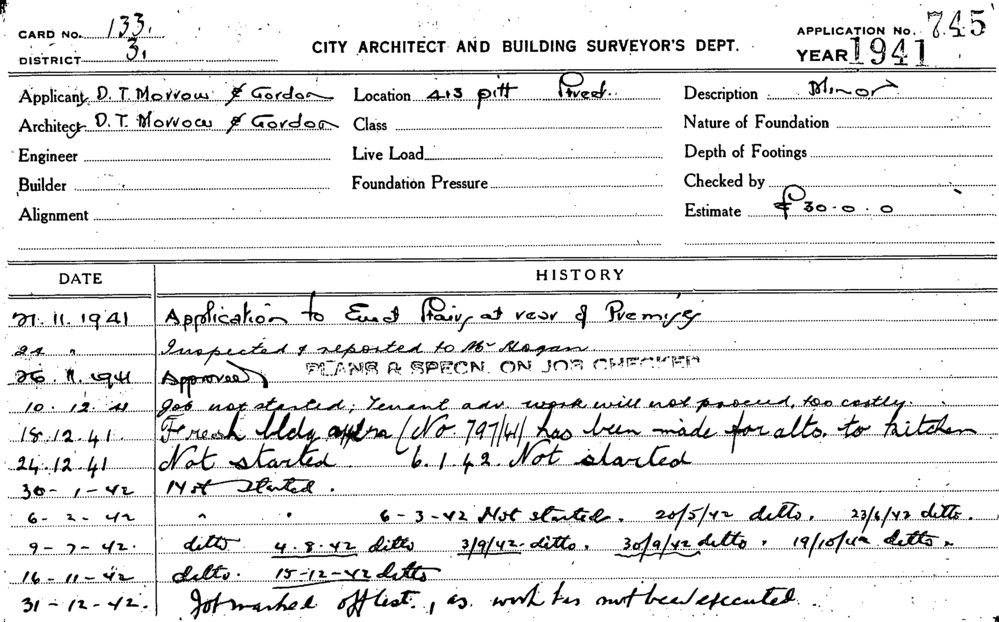 CARD No. 133. CITY ARCHITECT AND BUILDING SURVEYOR'S DEPT. APPLICATION No. 745
DISTRICT 3. YEAR 1941
Applicant D. T. Morrow & Gordon Location 413 pitt Street. Description Minor
Architect D. T. Morrow & Gordon Class Nature of Foundation
Engineer Live Load Depth of Footings
Builder Foundation Pressure Checked by
Alignment Estimate £ 30.0.0
DATE HISTORY
21.11.1941 Application to Erect Stairs at rear of Premises
24 " Inspected & reported to Mr Hogan
PLANS & SPECN. ON JOB CHECKED
26.11.1941 Approved
10.12.41 Job not started; Tenant adv. work will not proceed, too costly.
18.12.41. Fresh bldg (No. 797/41) has been made for alts. to kitchen
24.12.41 Not started. 6.1.42. Not started
30-1-42 Not started.
6-2-42 " " 6-3-42 Not started. 20/5/42 ditto. 23/6/42 ditto.
9-7-42. ditto 4.8.42 ditto 3/9/42. ditto. 30/9/42 ditto. 19/10/42 ditto.
16-11-42 ditto. 15-12-42 ditto
31-12-42. Job marked off list., as work has not been executed.